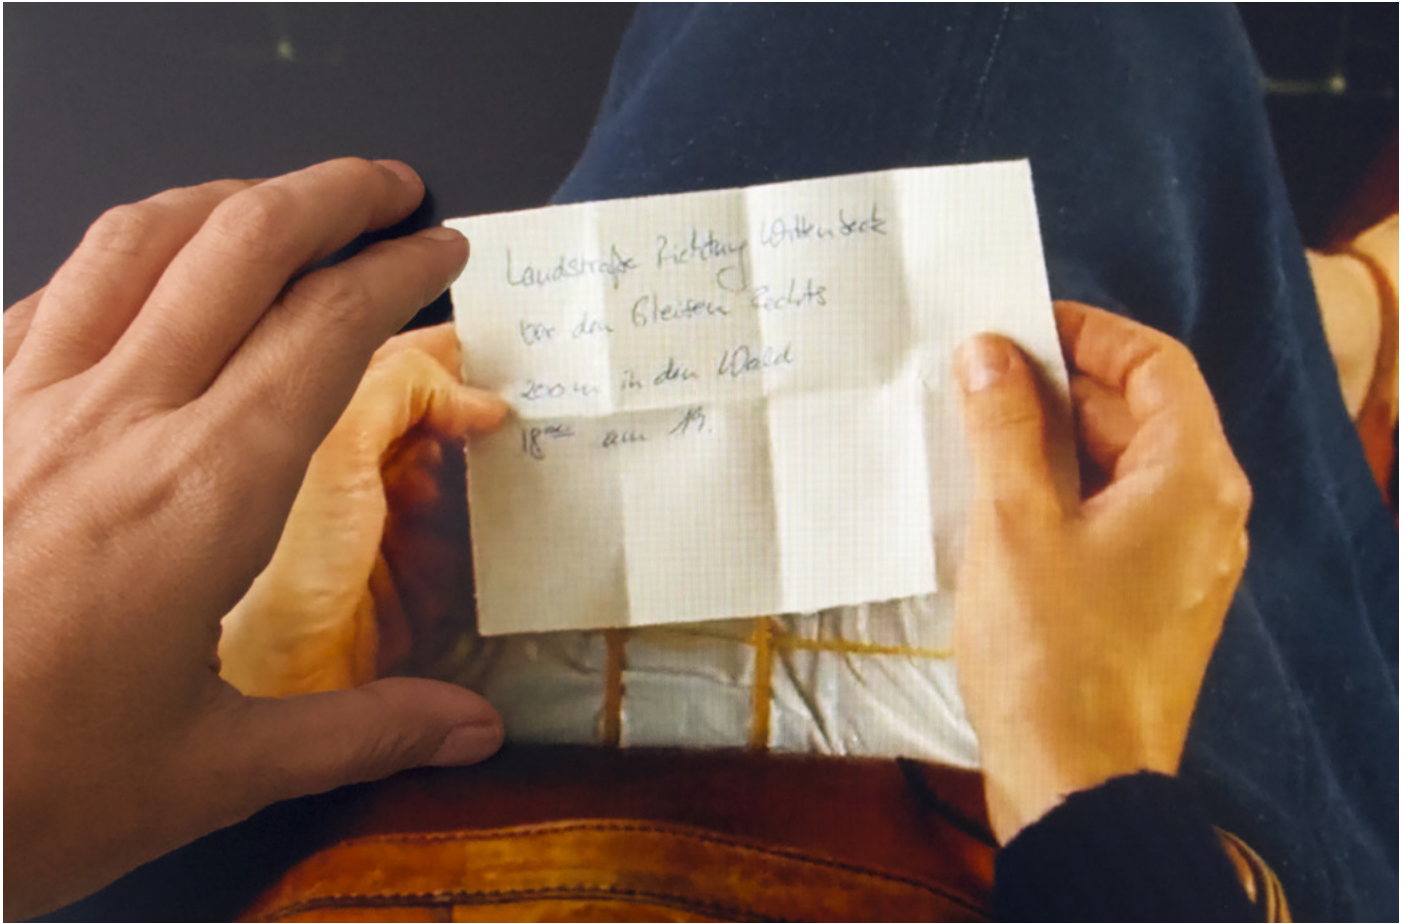 Landstraße Richtung Wittenbeck
vor den Gleisen Rechts
200 m in den Wald
18⁰⁰ am 19.